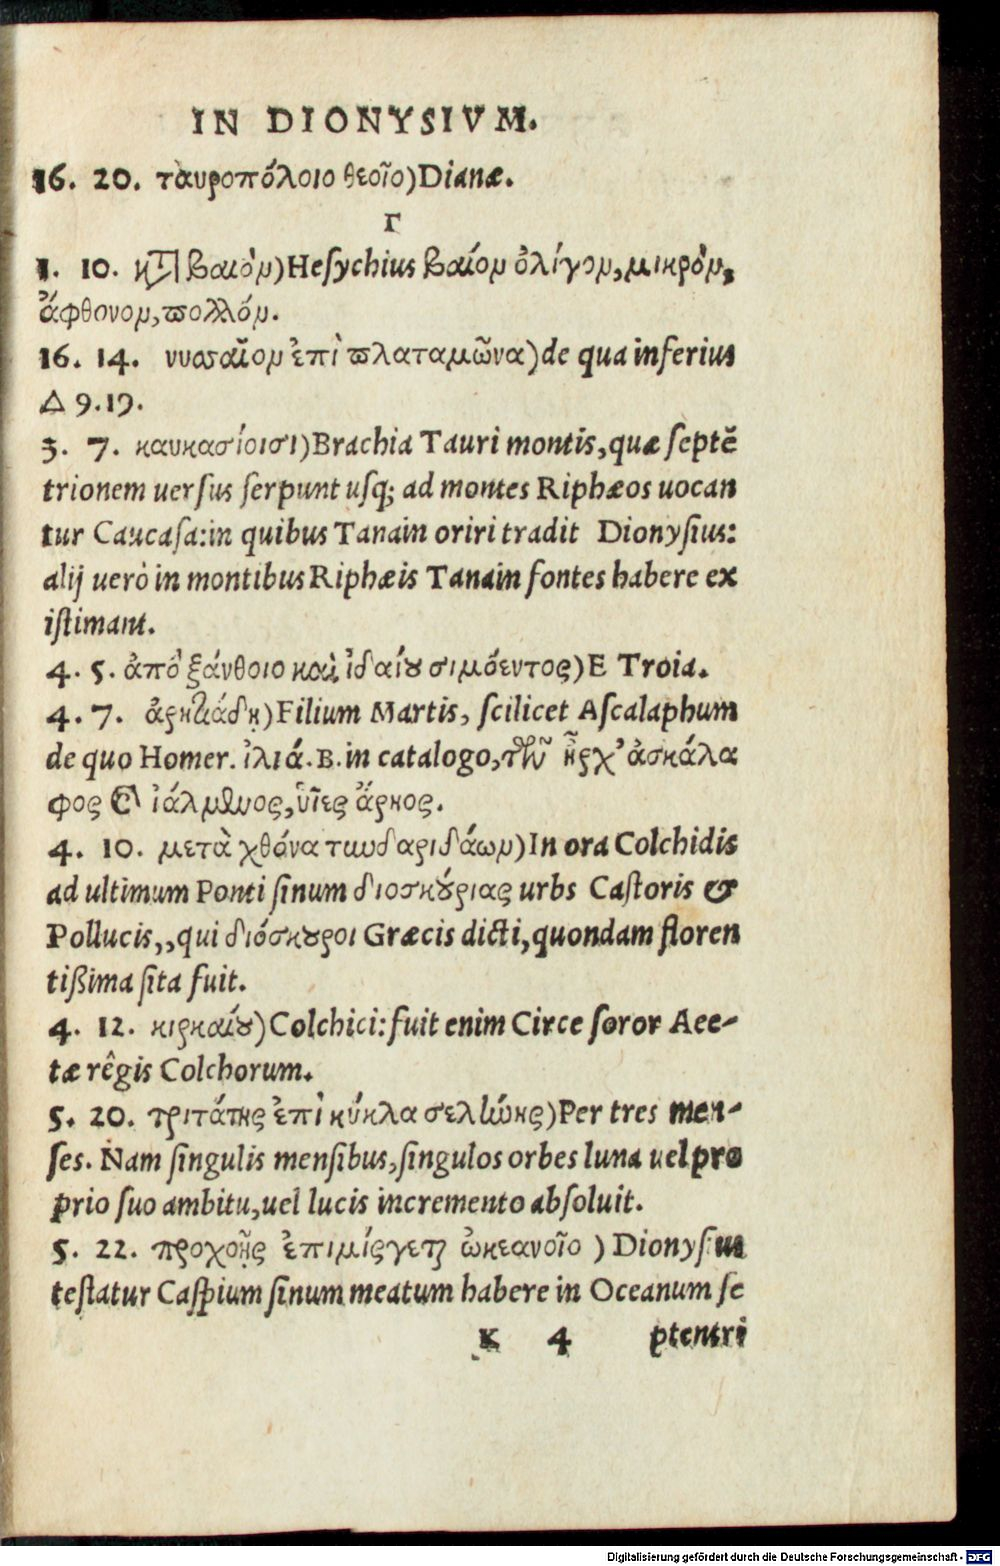 IN DIONYSIVM.
16. 20. ταυροπόλοιο θεοῖο)Dianæ.
Γ
1. 10. βαιὸν)Heſychius βαίον ὀλίγον, μικρὸν,
ἄφθονον, πολλόν.
16. 14. νυσσαῖον ἐπὶ πλαταμῶνα)de qua inferius
Δ 9.19.
3. 7. καυκασίοισι)Brachia Tauri montis, quæ ſeptē
trionem uerſus ſerpunt uſq; ad montes Riphæos uocan
tur Caucaſa:in quibus Tanain oriri tradit Dionyſius:
alij uerò in montibus Riphæis Tanain fontes habere ex
iſtimant.
4. 5. ἀπὸ ξάνθοιο καὶ ἰδαίȣ σιμόεντος)E Troia.
4. 7. ἀρητιάδῃ)Filium Martis, ſcilicet Aſcalaphum
de quo Homer. ἰλιά. B. in catalogo, τῶν ἦρχ’ ἀσκάλα
φος καὶ ἰάλμενος, ὑῖες ἄρηος.
4. 10. μετὰ χθόνα τυνδαριδάων)In ora Colchidis
ad ultimum Ponti ſinum διοσκȣ́ριας urbs Caſtoris &
Pollucis,, qui διόσκȣροι Græcis dicti, quondam floren
tißima ſita fuit.
4. 12. κιρκαίȣ)Colchici: fuit enim Circe ſoror Aee-
tæ rêgis Colchorum.
5. 20. τριτάτης ἐπὶ κύκλα σελήνης)Per tres men-
ſes. Nam ſingulis menſibus, ſingulos orbes luna uel pro
prio ſuo ambitu, uel lucis incremento abſoluit.
5. 22. προχοῇς ἐπιμίσγεται ὠκεανοῖο ) Dionyſius
teſtatur Caſpium ſinum meatum habere in Oceanum ſe
K 4 ptentri
Digitalisierung gefördert durch die Deutsche Forschungsgemeinschaft - DFG